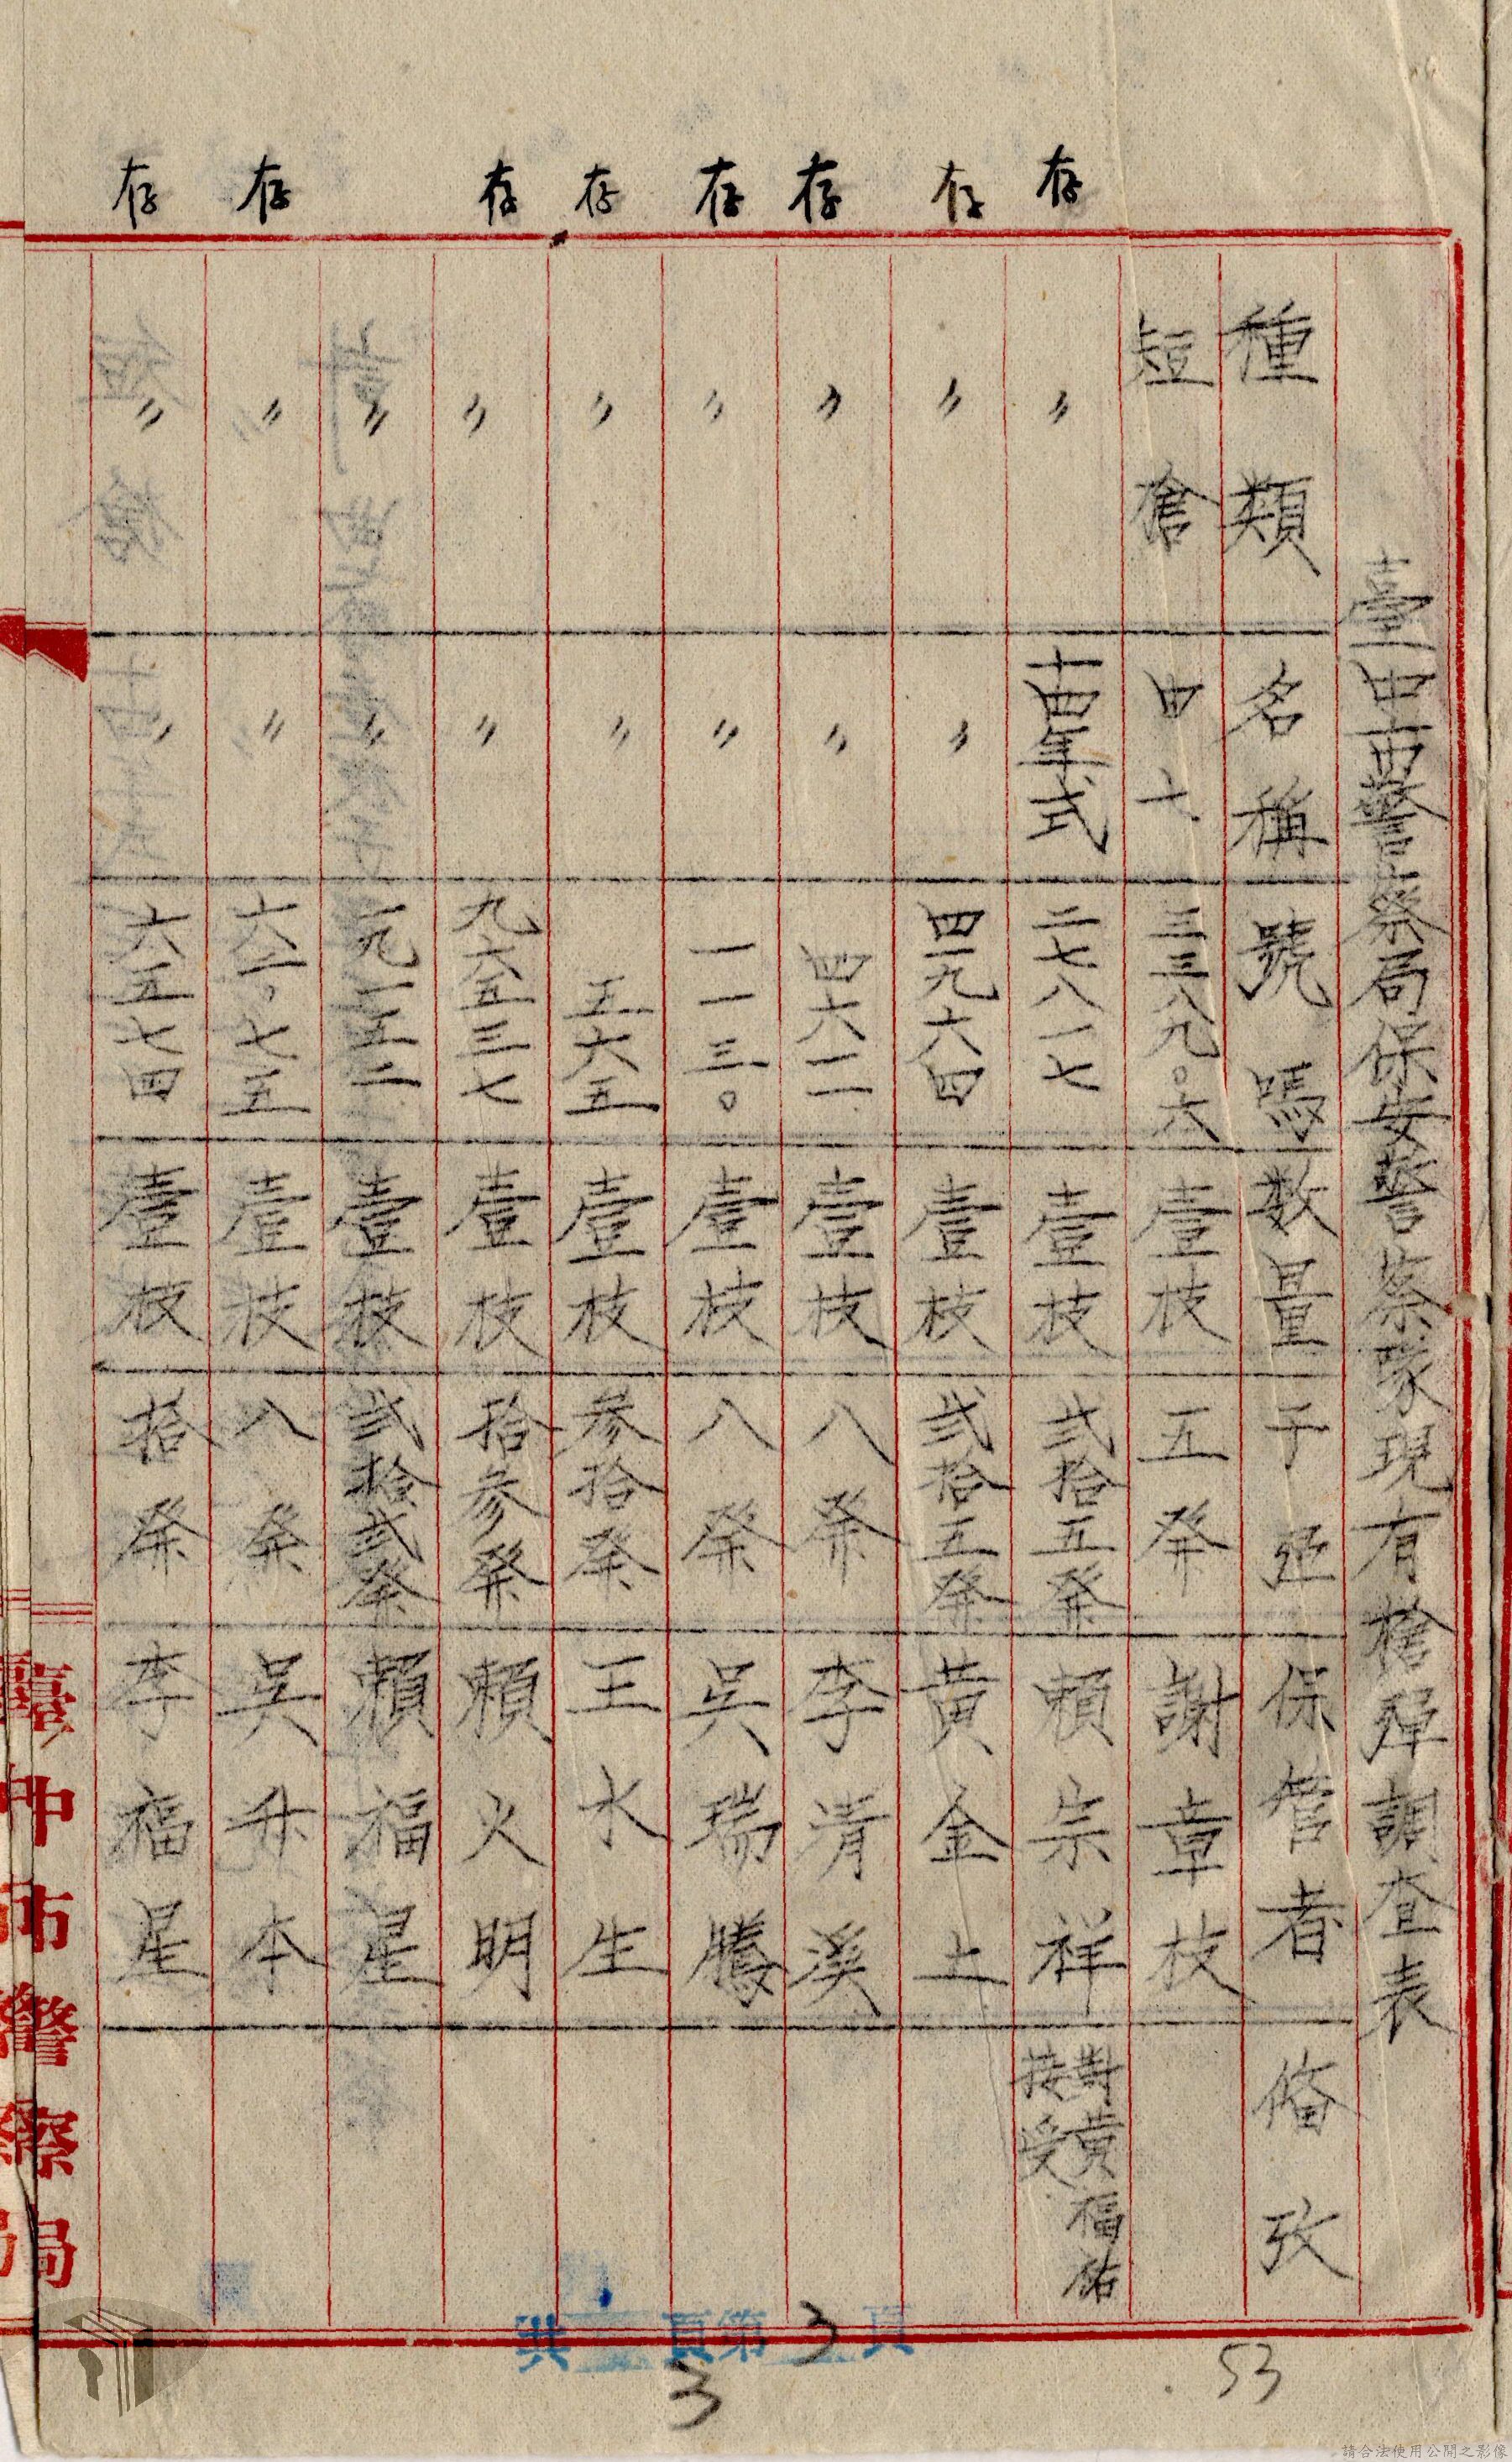 臺中市警察局保安警察隊現有槍弹調查表
種類 名稱 號碼 数量 子弹 保管者 俻攷
短槍 甲七 三三八九〇六 壹枝 五發 謝章枝
存 〃 十四年式 二七八一七 壹枝 弍拾五發 賴宗祥 對黄福佑接受
存 〃 〃 四一九六四 壹枝 弍拾五發 黄金土
存 〃 〃 四六二 壹枝 八發 李清溪
存 〃 〃 一一三〇 壹枝 八發 吳瑞騰
存 〃 〃 五六五 壹枝 参拾發 王水生
存 〃 〃 九六五三七 壹枝 拾参發 賴火明
〃 〃 一九一五二 壹枝 弍拾弍發 賴福星
存 〃 〃 六二〇七五 壹枝 八發 吳升本
存 〃 〃 六五七四 壹枝 拾發 李福星
臺中市警察局
共 頁第3頁
3
53
請合法使用公開之影像